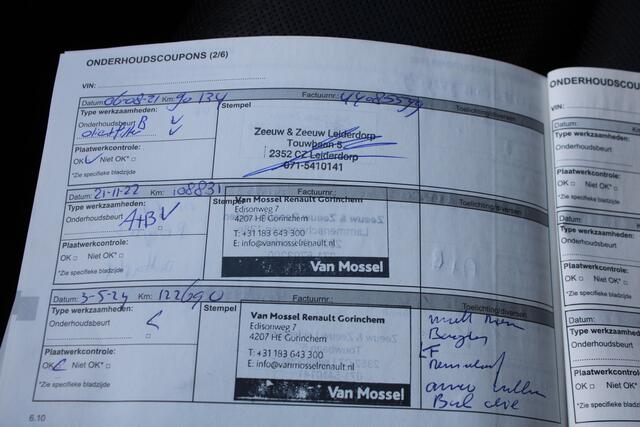 ONDERHOUDSCOUPONS (2/6)
VIN:
Datum: 06-08-21 Km: 90 134 Factuurnr.:
Type werkzaamheden: Stempel Toelichting/diversen
Onderhoudsbeurt B
Zeeuw & Zeeuw Leiderdorp
Touwbaan 5
2352 CZ Leiderdorp
071-5410141
Plaatwerkcontrole:
OK Niet OK*
*Zie specifieke bladzijde
Datum: 21-11-22 Km: 108831 Factuurnr.:
Type werkzaamheden: Stempel Toelichting/diversen
Onderhoudsbeurt A+B
Van Mossel Renault Gorinchem
Edisonweg 7
4207 HE Gorinchem
T: +31 183 643 300
E: info@vanmosselrenault.nl
Van Mossel
Plaatwerkcontrole:
OK Niet OK*
*Zie specifieke bladzijde
Datum: 3-5-24 Km: Factuurnr.:
Type werkzaamheden: Stempel Toelichting/diversen
Onderhoudsbeurt
Van Mossel Renault Gorinchem
Edisonweg 7
4207 HE Gorinchem
T: +31 183 643 300
E: info@vanmosselrenault.nl
Van Mossel
Plaatwerkcontrole:
OK Niet OK*
*Zie specifieke bladzijde
6.10
ONDERHOUDSCOU
Datum:
Type werkzaamheden:
Onderhoudsbeurt
Plaatwerkcontrole:
OK Niet OK*
*Zie specifieke bladzijde
Datum:
Type werkzaamheden:
Onderhoudsbeurt
Plaatwerkcontrole:
OK Niet OK*
*Zie specifieke bladzijde
Datum:
Type werkzaamheden:
Onderhoudsbeurt
Plaatwerkcontrole:
OK Niet OK*
*Zie specifieke bladzijde